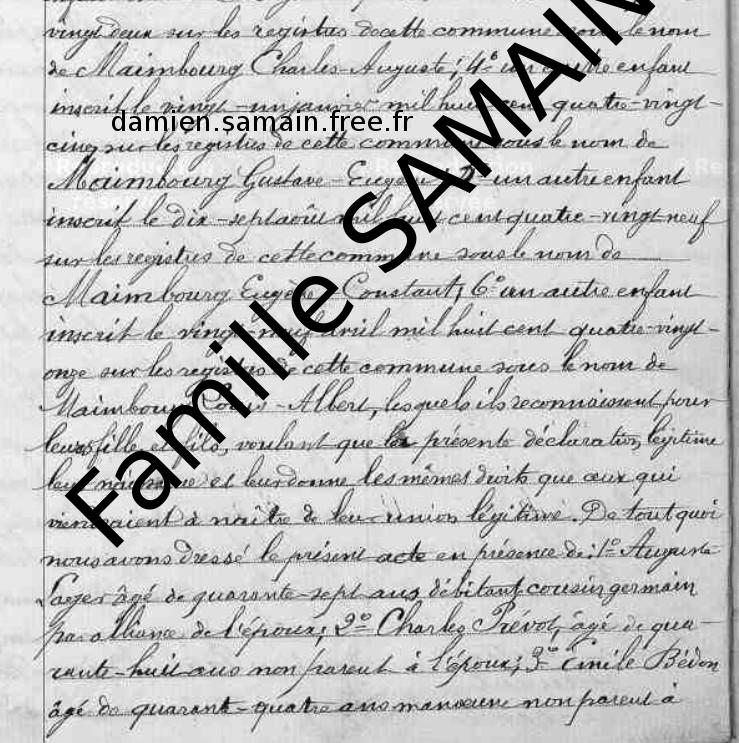 vingt deux sur les registres de cette commune sous le nom
de Maimbourg Charles-Auguste; 4° un autre enfant
inscrit le vingt-un janvier mil huit cent quatre-vingt-
cinq sur les registres de cette commune sous le nom de
Maimbourg Gustave-Eugène; un autre enfant
inscrit le dix-sept août mil huit cent quatre-vingt neuf
sur les registres de cette commune sous le nom de
Maimbourg Eugène Constant; 6° un autre enfant
inscrit le vingt-neuf avril mil huit cent quatre-vingt-
onze sur les registres de cette commune sous le nom de
Maimbourg Louis-Albert, lesquels ils reconnaissent pour
leurs fille et fils, voulant que la présente déclaration légitime
leur naissance et leur donne les mêmes droits que ceux qui
viendraient à naître de leur union légitime. De tout quoi
nous avons dressé le présent acte en présence de: 1° Auguste
âgé de quarante-sept ans débitant, cousin germain
par alliance de l'époux; 2° Charles Prévot, âgé de qua-
rante-huit ans non parent à l'époux; 3° Emile Bédon
âgé de quarante-quatre ans manœuvre non parent à
damien.samain.free.fr
Famille SAMAIN